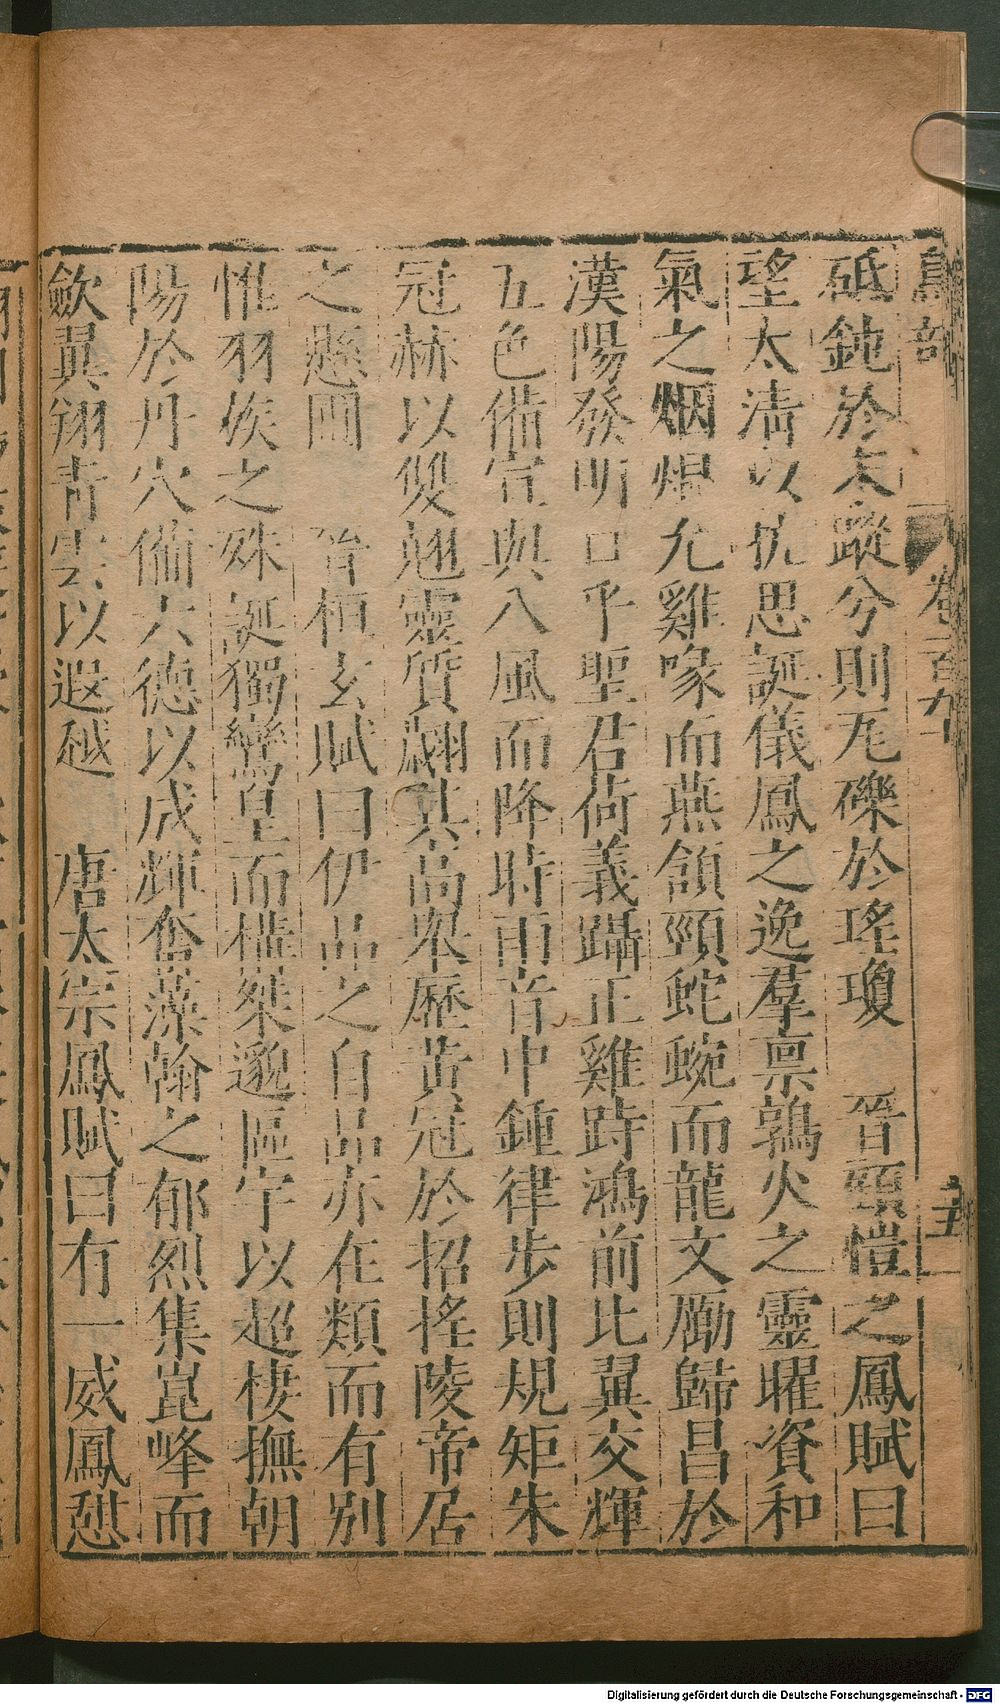 鳥部
卷一百九十
砥鈍於太蹤分則瓦礫於瑤瓊　晉顧愷之鳳賦曰
望太清以抗思誕儀鳳之逸羣禀鶉火之靈曜資和
氣之烟熅允雞喙而燕頷頸蛇蜿而龍文勵歸昌於
漢陽發明口乎聖君荷義躡正雞跱鴻前比翼交輝
五色備宣與八風而降時雨音中鍾律步則規矩朱
冠赫以雙翹靈質翽其高舉歷黃冠於招搖陵帝居
之懸圃　晉桓玄賦曰伊品之自品亦在類而有別
惟羽族之殊誕獨鸞皇而標桀邈區宇以超棲撫朝
陽於丹穴備六德以成輝奮藻翰之郁烈集崑峰而
歛翼翔青雲以遐越　唐太宗鳳賦曰有一威鳳憇
Digitalisierung gefördert durch die Deutsche Forschungsgemeinschaft - DFG